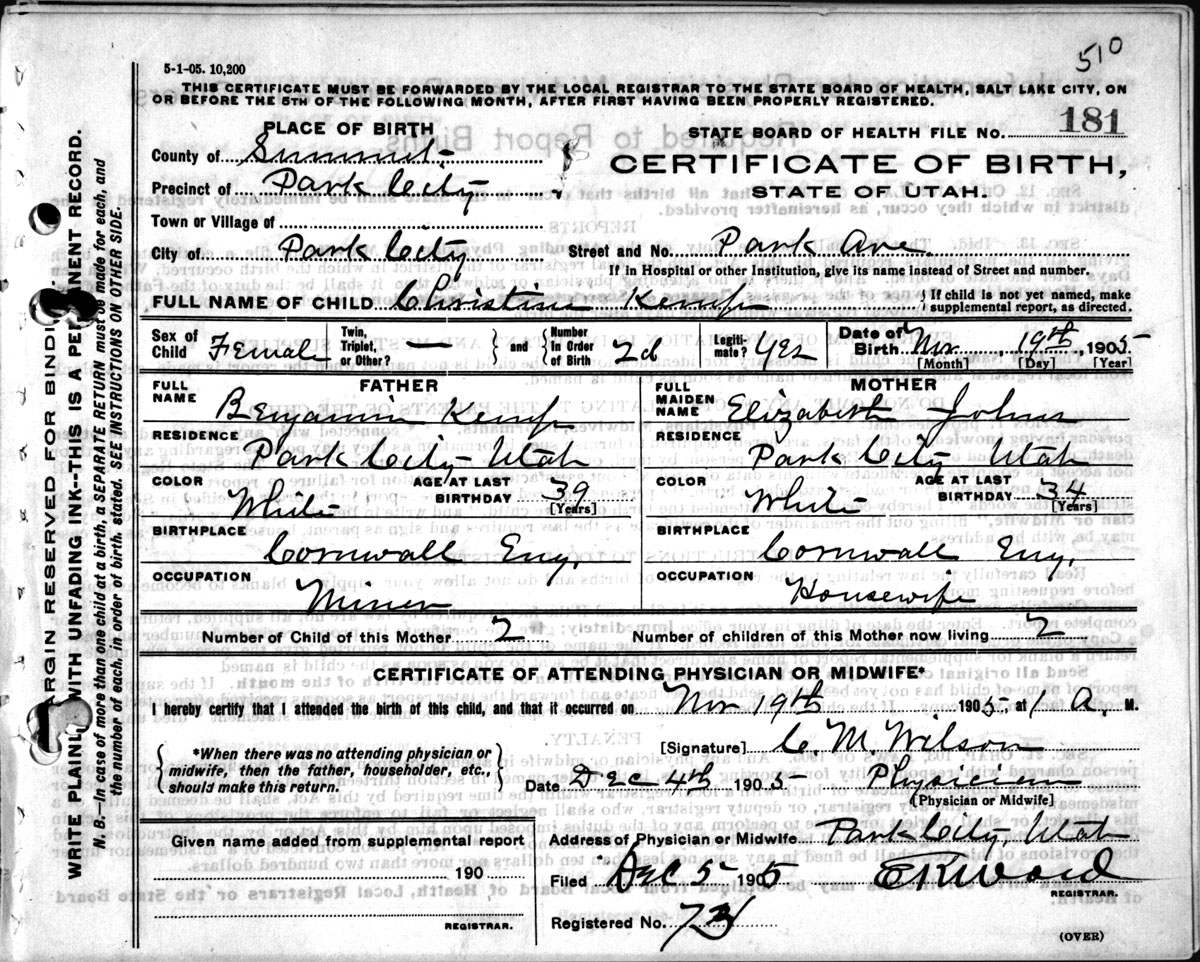 510
5-1-05. 10,200
THIS CERTIFICATE MUST BE FORWARDED BY THE LOCAL REGISTRAR TO THE STATE BOARD OF HEALTH, SALT LAKE CITY, ON
OR BEFORE THE 5TH OF THE FOLLOWING MONTH, AFTER FIRST HAVING BEEN PROPERLY REGISTERED.
PLACE OF BIRTH
STATE BOARD OF HEALTH FILE NO. 181
County of Summit
CERTIFICATE OF BIRTH,
Precinct of Park City
STATE OF UTAH.
Town or Village of
City of Park City Street and No. Park Ave
If in Hospital or other Institution, give its name instead of Street and number.
FULL NAME OF CHILD Christina Kemp } If child is not yet named, make supplemental report, as directed.
Sex of Child Female Twin, Triplet, or Other? — } and { Number in Order of Birth 2d Legitimate? yes Date of Birth Nov 19th, 1905
[Month] [Day] [Year]
FATHER
FULL NAME Benjamin Kemp
RESIDENCE Park City Utah
COLOR White AGE AT LAST BIRTHDAY 39 [Years]
BIRTHPLACE Cornwall Eng,
OCCUPATION Miner
MOTHER
FULL MAIDEN NAME Elizabeth Johns
RESIDENCE Park City Utah
COLOR White AGE AT LAST BIRTHDAY 34 [Years]
BIRTHPLACE Cornwall Eng,
OCCUPATION Housewife
Number of Child of this Mother 2 Number of children of this Mother now living 2
CERTIFICATE OF ATTENDING PHYSICIAN OR MIDWIFE*
I hereby certify that I attended the birth of this child, and that it occurred on Nov 19th 1905, at 1 A. M.
{ *When there was no attending physician or
midwife, then the father, householder, etc.,
should make this return. }
[Signature] C. M. Wilson
Date Dec 4th 1905 Physician
[Physician or Midwife]
Given name added from supplemental report
190
REGISTRAR.
Address of Physician or Midwife Park City, Utah
Filed Dec 5 1905 E R Ward
REGISTRAR.
Registered No. 73
(OVER)
MARGIN RESERVED FOR BINDING
WRITE PLAINLY, WITH UNFADING INK--THIS IS A PERMANENT RECORD.
N. B.—In case of more than one child at a birth, a SEPARATE RETURN must be made for each, and
the number of each, in order of birth, stated. SEE INSTRUCTIONS ON OTHER SIDE.